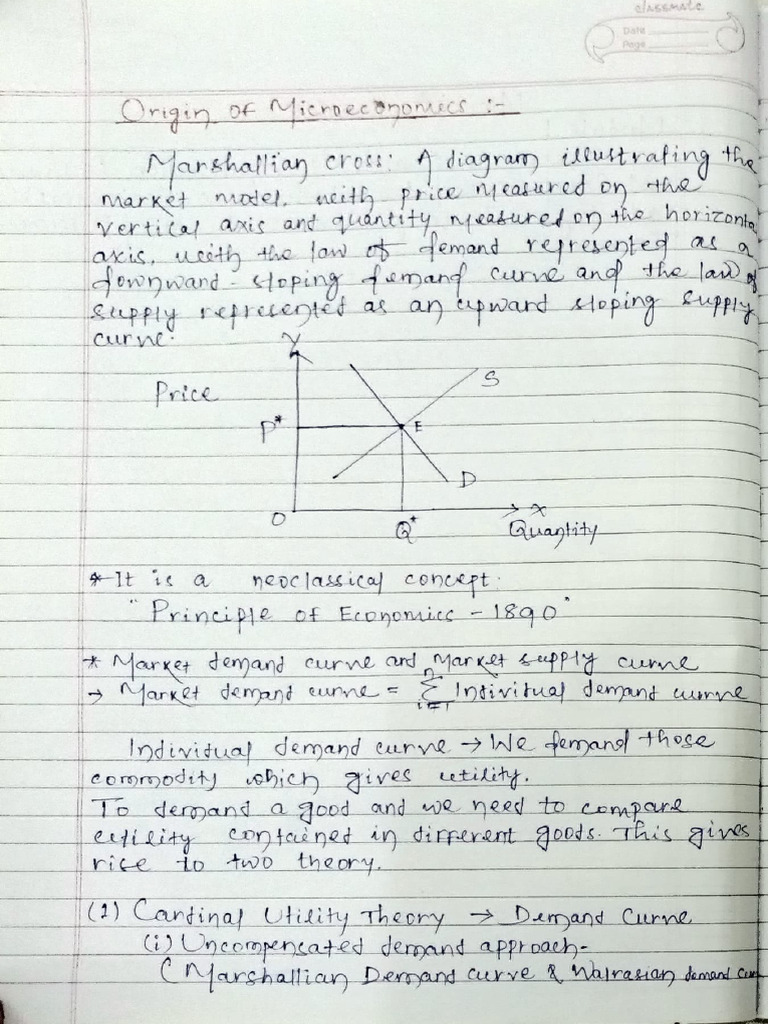 classmate
Date
Page
Origin of Microeconomics :-
Marshallian cross: A diagram illustrating the
market model, with price measured on the
vertical axis and quantity measured on the horizonta
axis, with the law of demand represented as a
downward-sloping demand curve and the law of
supply represented as an upward sloping supply
curve.
Y
Price
S
P*
E
D
O
Q*
X
Quantity
* It is a neoclassical concept.
"Principle of Economics - 1890"
* Market demand curve and Market supply curve
→ Market demand curve = n∑i=1 Individual demand curve
Individual demand curve → We demand those
commodity which gives utility.
To demand a good and we need to compare
utility contained in different goods. This gives
rise to two theory.
(1) Cardinal Utility Theory → Demand Curve
(i) Uncompensated demand approach-
(Marshallian Demand curve & Walrasian demand cur